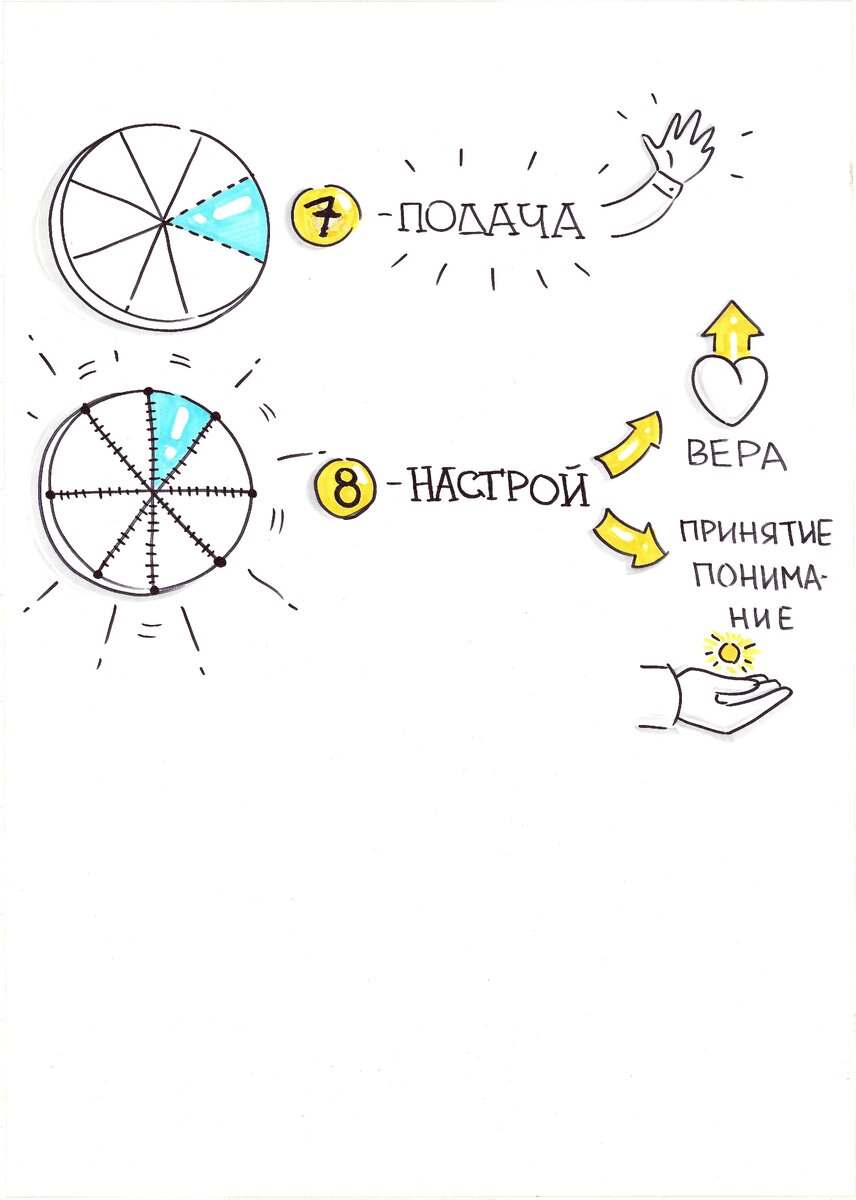 7 - ПОДАЧА
8 - НАСТРОЙ
ВЕРА
ПРИНЯТИЕ
ПОНИМА-
НИЕ